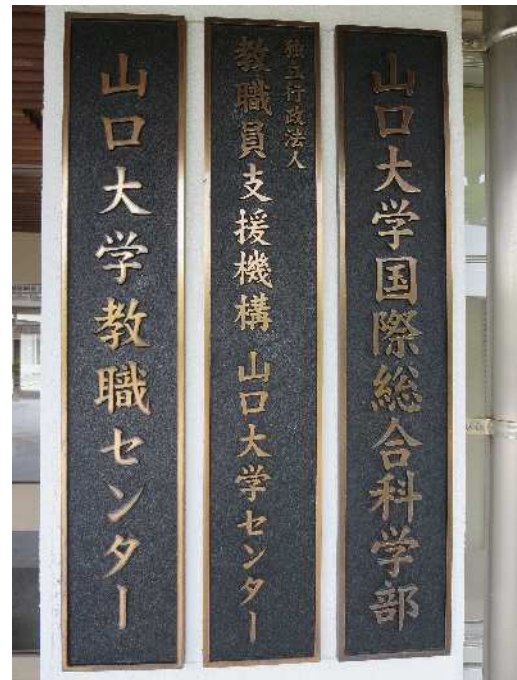 山口大学国際総合科学部
独立行政法人
教職員支援機構 山口大学センター
山口大学教職センター